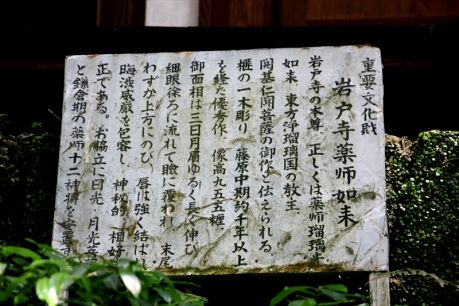 重要文化財
岩戸寺薬師如来
岩戸寺の本尊 正しくは薬師瑠璃光
如来 東方浄瑠璃国の教主、
開基仁聞菩薩の御作と伝えられる。
榧の一木彫り 藤原中期約千年以上
を経た優秀作 像高九五五糎
御面相は三日月眉ゆるく長く伸び
細眼徐ろに流れて瞼に覆われ 末尾
わずか上方にのび、唇は強く結ばれ
晦渋威厳を包容し 神秘的 相好
正である。お脇立に日光 月光菩
と鎌倉期の薬師十二神将を